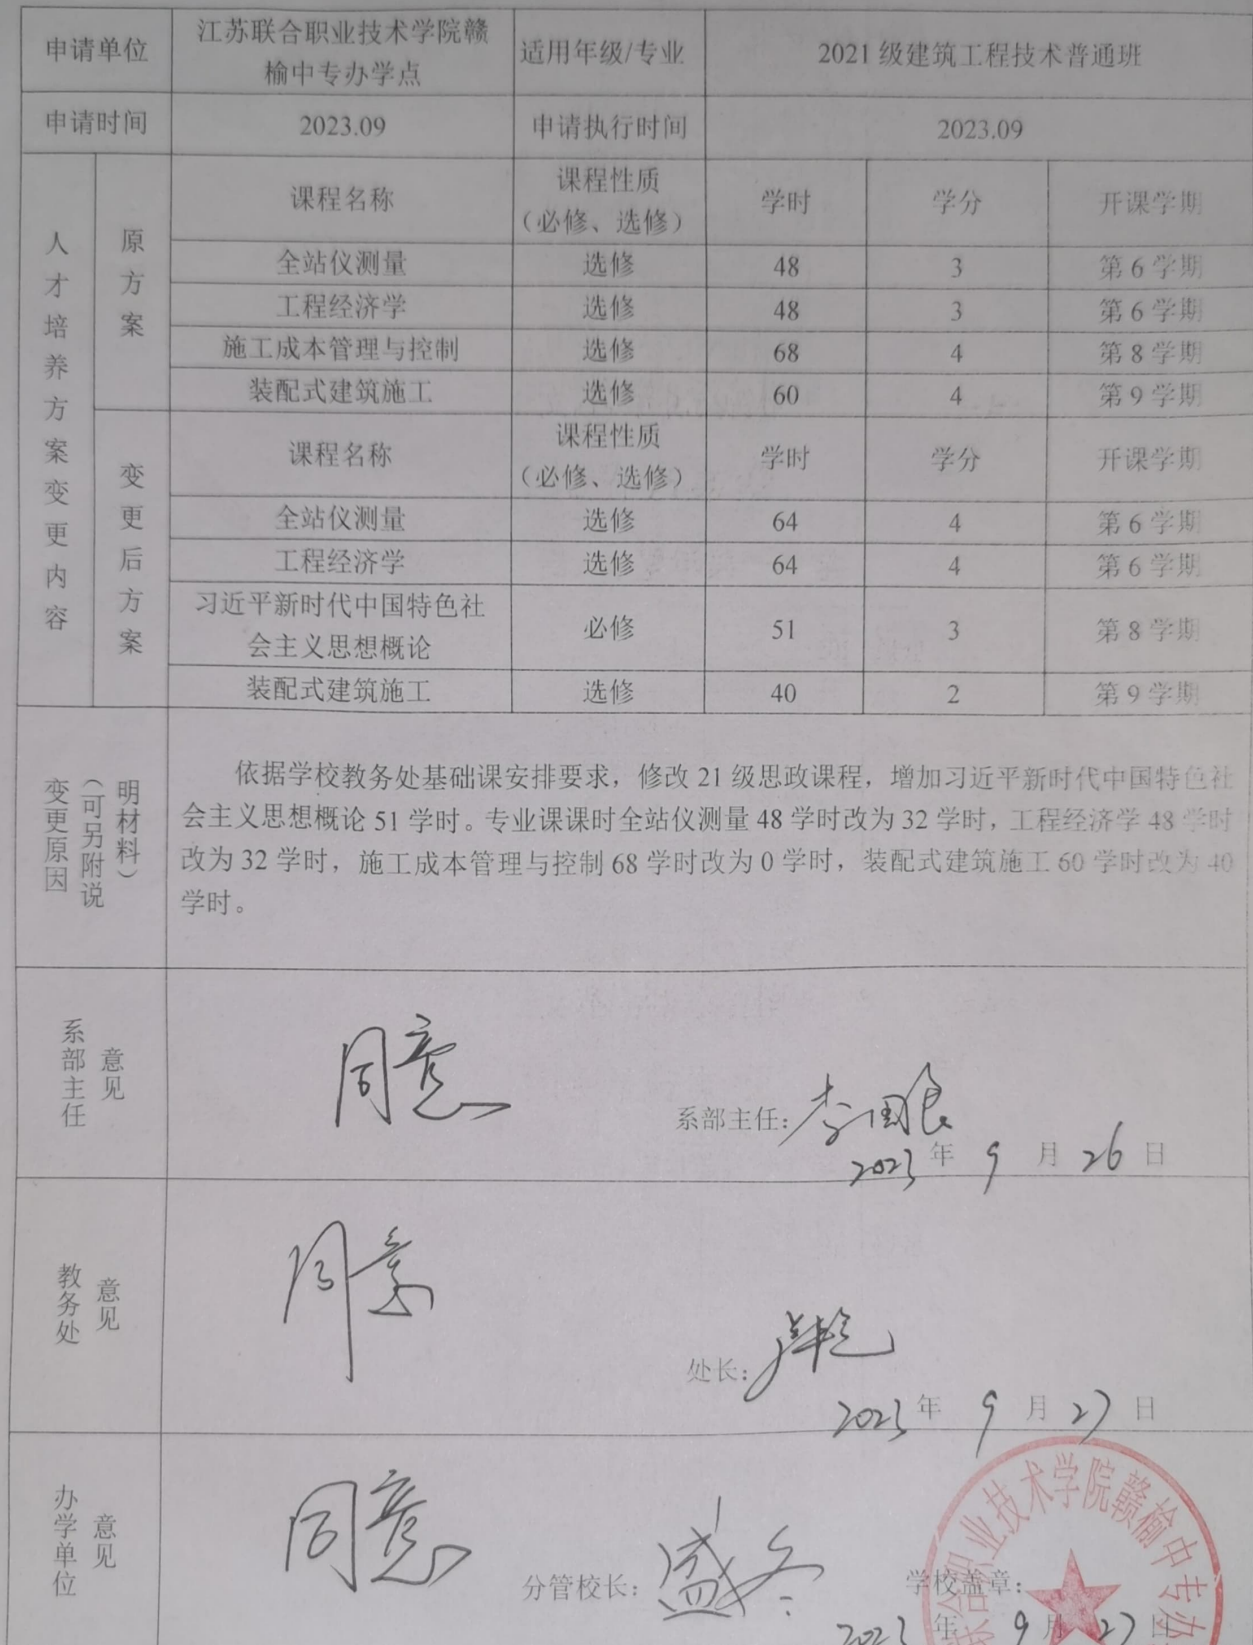 申请单位 江苏联合职业技术学院赣榆中专办学点 适用年级/专业 2021级建筑工程技术普通班
申请时间 2023.09 申请执行时间 2023.09
人才培养方案变更内容
原方案
课程名称 课程性质（必修、选修） 学时 学分 开课学期
全站仪测量 选修 48 3 第6学期
工程经济学 选修 48 3 第6学期
施工成本管理与控制 选修 68 4 第8学期
装配式建筑施工 选修 60 4 第9学期
变更后方案
课程名称 课程性质（必修、选修） 学时 学分 开课学期
全站仪测量 选修 64 4 第6学期
工程经济学 选修 64 4 第6学期
习近平新时代中国特色社会主义思想概论 必修 51 3 第8学期
装配式建筑施工 选修 40 2 第9学期
变更原因（可另附说明材料）
依据学校教务处基础课安排要求，修改21级思政课程，增加习近平新时代中国特色社
会主义思想概论51学时。专业课课时全站仪测量48学时改为32学时，工程经济学48学时
改为32学时，施工成本管理与控制68学时改为0学时，装配式建筑施工60学时改为40
学时。
系部主任意见
同意
系部主任：李国良
2023年9月26日
教务处意见
同意
处长：
2023年9月27日
办学单位意见
同意
分管校长：盛冬 学校盖章：
2023年9月27日
联合职业技术学院赣榆中专办